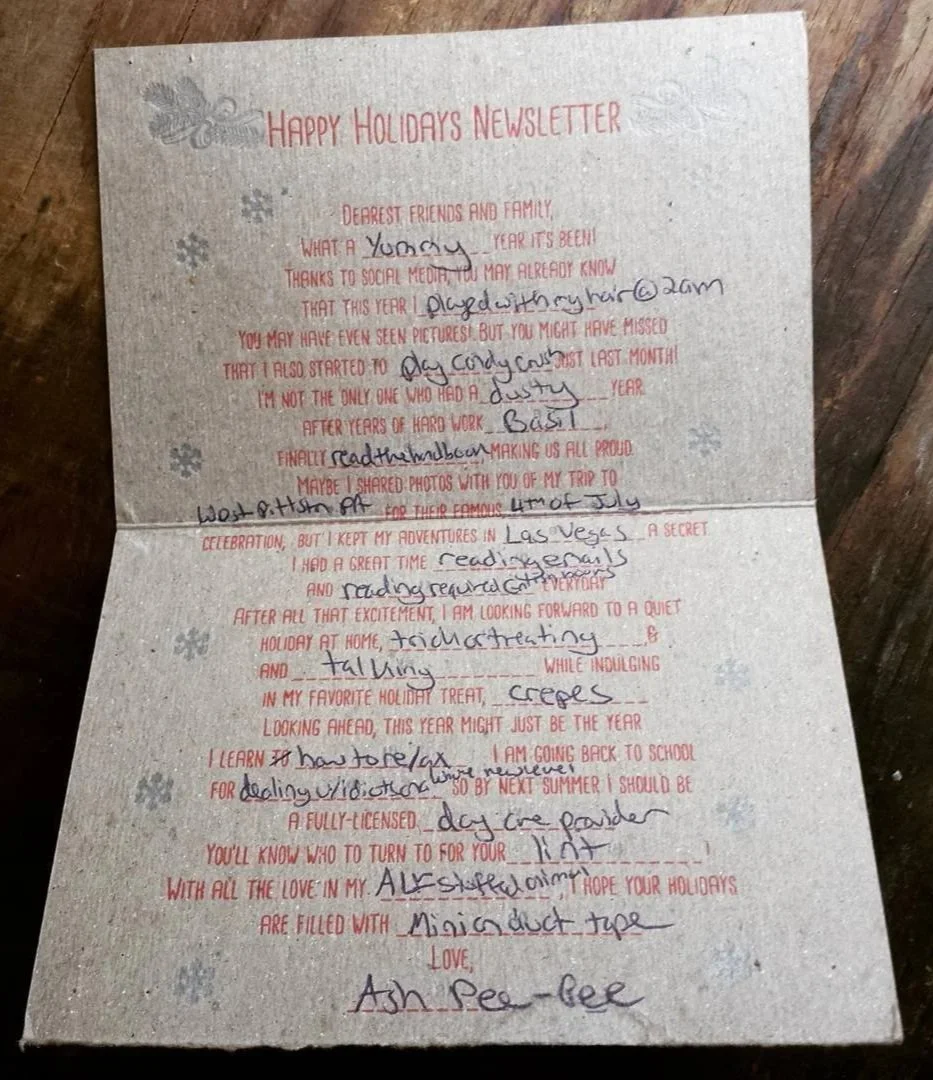 HAPPY HOLIDAYS NEWSLETTER
DEAREST FRIENDS AND FAMILY,
WHAT A Yummy YEAR IT'S BEEN!
THANKS TO SOCIAL MEDIA, YOU MAY ALREADY KNOW
THAT THIS YEAR I played with my hair @ 2am
YOU MAY HAVE EVEN SEEN PICTURES! BUT YOU MIGHT HAVE MISSED
THAT I ALSO STARTED TO play candy crush JUST LAST MONTH!
I'M NOT THE ONLY ONE WHO HAD A dusty YEAR.
AFTER YEARS OF HARD WORK Basil,
FINALLY read the handbook, MAKING US ALL PROUD.
MAYBE I SHARED PHOTOS WITH YOU OF MY TRIP TO
West Pittston PA FOR THEIR FAMOUS 4th of July
CELEBRATION, BUT I KEPT MY ADVENTURES IN Las Vegas A SECRET
I HAD A GREAT TIME reading emails
AND reading required EVERYDAY
AFTER ALL THAT EXCITEMENT, I AM LOOKING FORWARD TO A QUIET
HOLIDAY AT HOME, trick or treating &
AND talking WHILE INDULGING
IN MY FAVORITE HOLIDAY TREAT, crepes
LOOKING AHEAD, THIS YEAR MIGHT JUST BE THE YEAR
I LEARN how to relax I AM GOING BACK TO SCHOOL
FOR dealing w/ idiots on a whole new level SO BY NEXT SUMMER I SHOULD BE
A FULLY-LICENSED day care provider
YOU'LL KNOW WHO TO TURN TO FOR YOUR lint !
WITH ALL THE LOVE IN MY ALF stuffed animal, I HOPE YOUR HOLIDAYS
ARE FILLED WITH Minion duct tape
LOVE,
Ash Pee-Bee